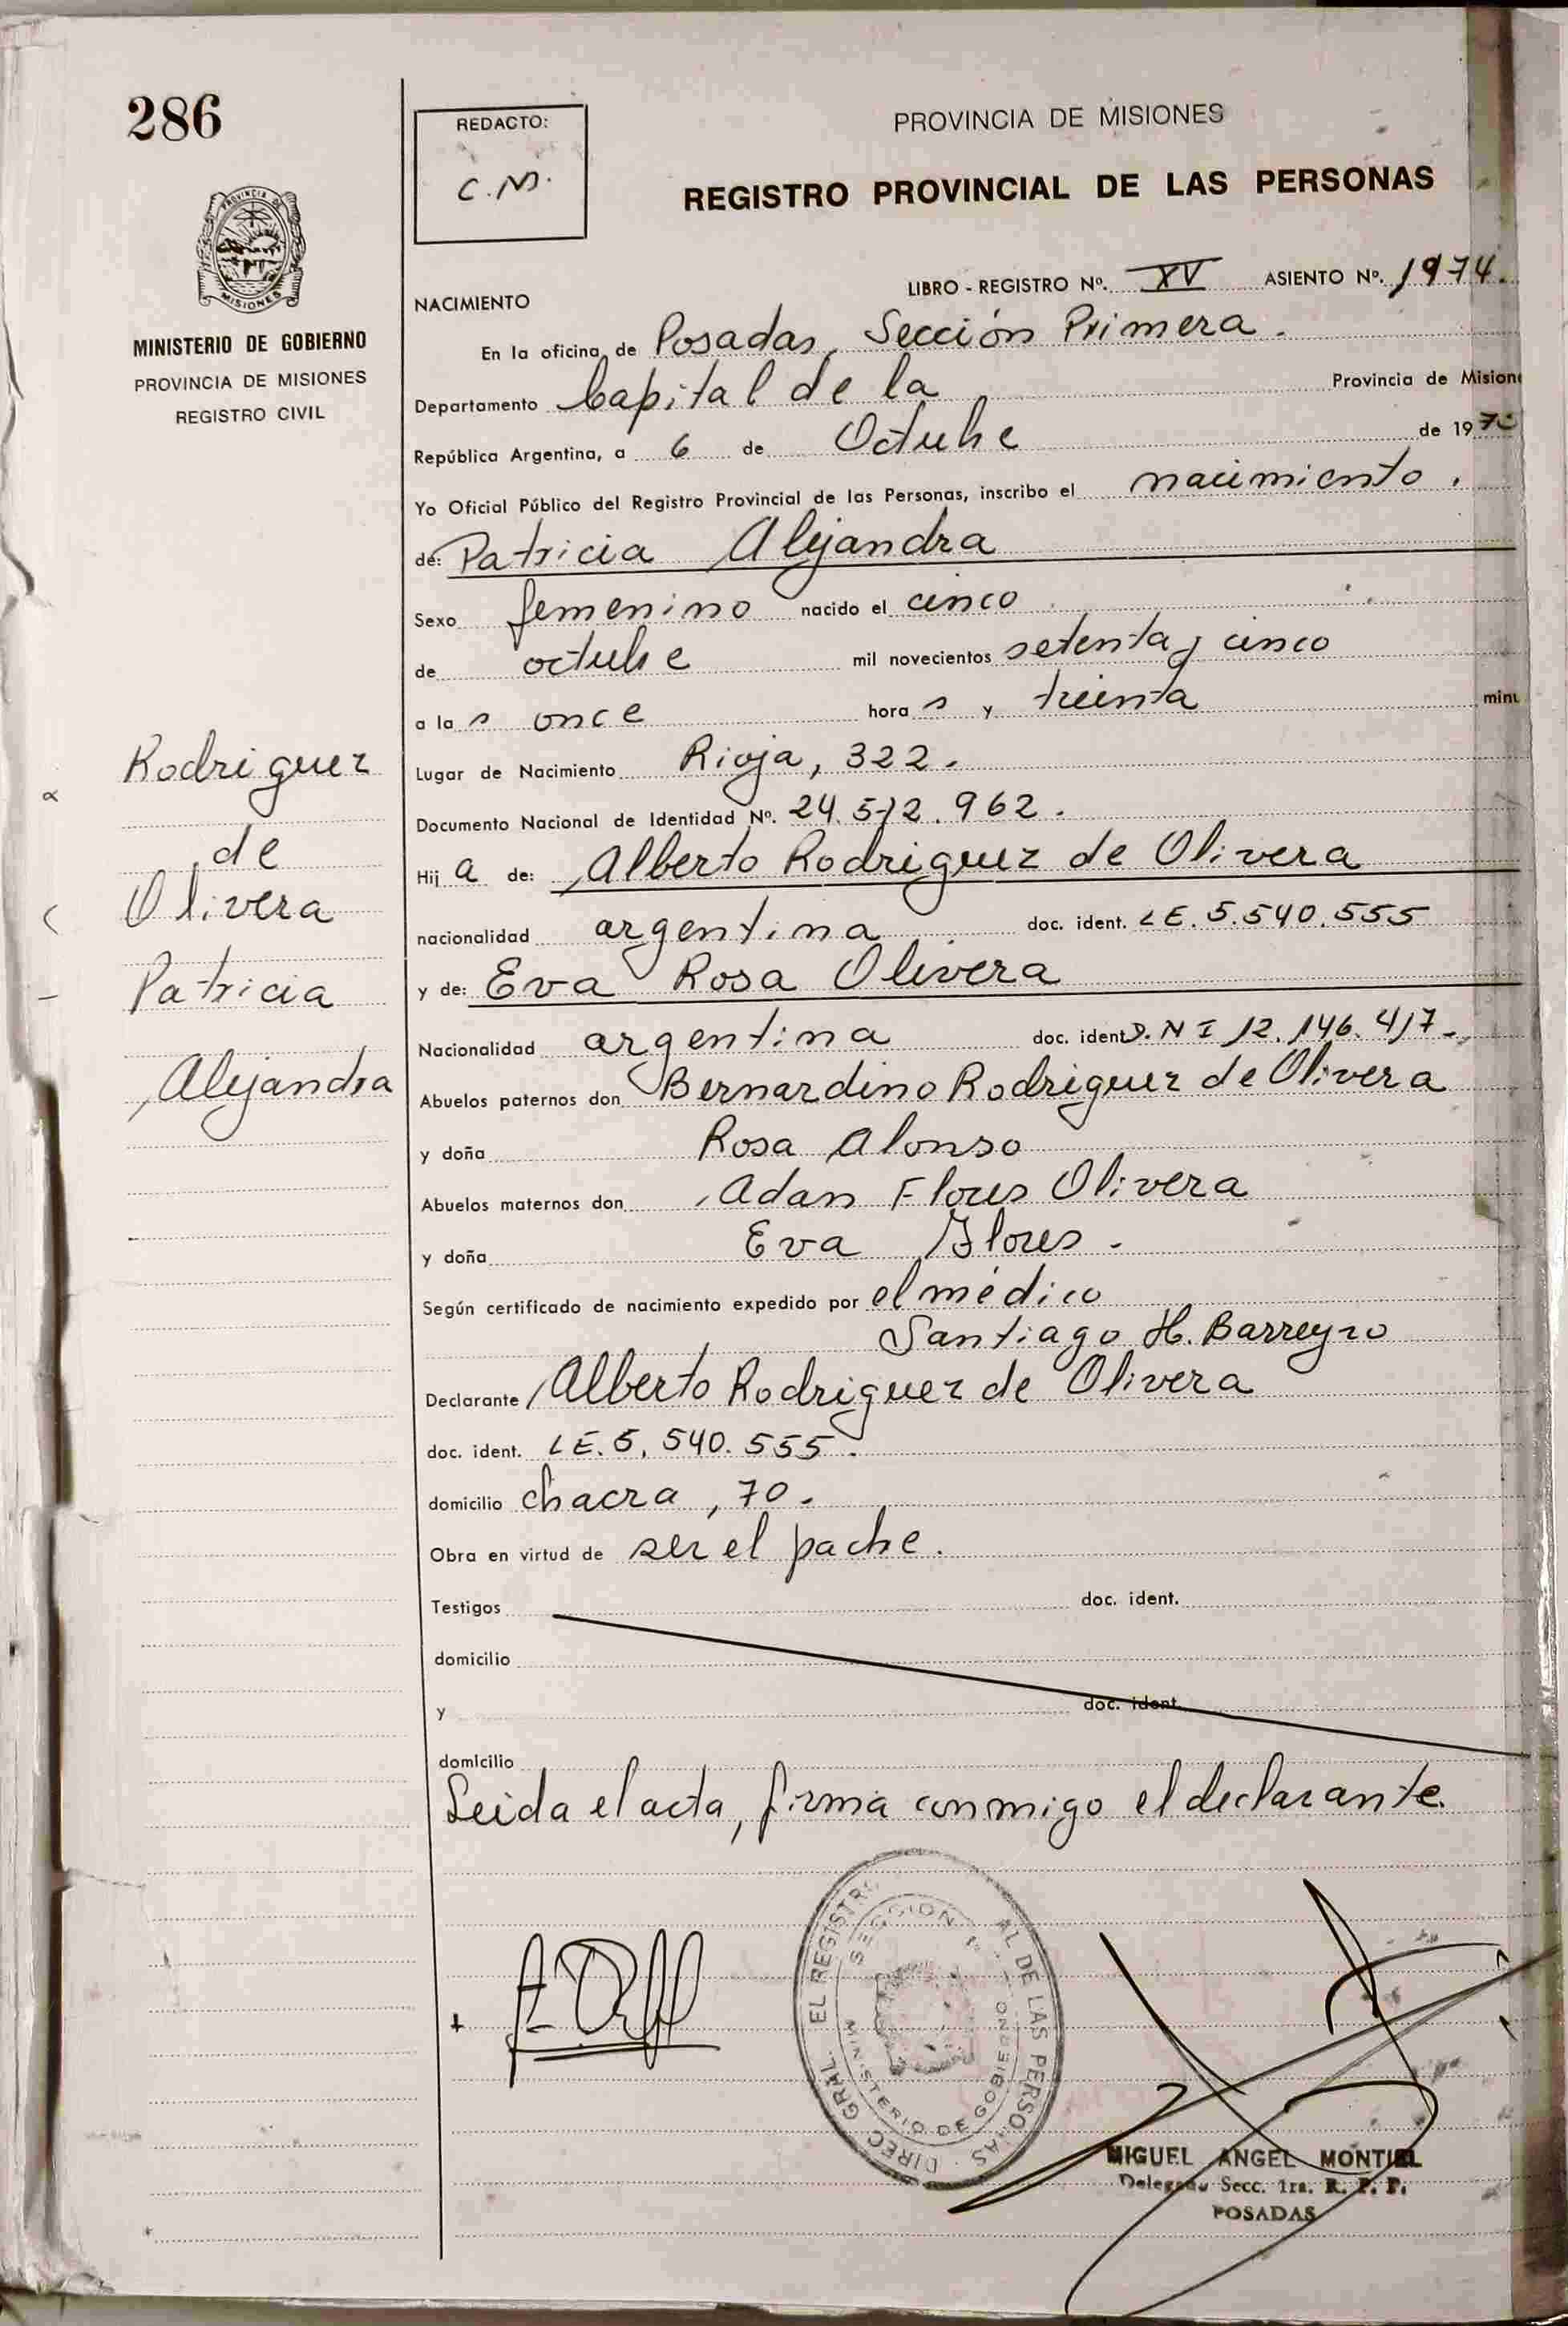 286
REDACTO:
C.M.
PROVINCIA DE MISIONES
REGISTRO PROVINCIAL DE LAS PERSONAS
PROVINCIA DE
MISIONES
MINISTERIO DE GOBIERNO
PROVINCIA DE MISIONES
REGISTRO CIVIL
LIBRO - REGISTRO Nº. XV ASIENTO Nº. 1974.
NACIMIENTO
En la oficina de Posadas, Sección Primera.
Departamento Capital de la Provincia de Misione
República Argentina, a 6 de Octubre de 197
Yo Oficial Público del Registro Provincial de las Personas, inscribo el nacimiento.
de: Patricia Alejandra
Sexo femenino nacido el cinco
de octubre mil novecientos setenta y cinco
a la s once hora s y treinta minu
Lugar de Nacimiento Rioja, 322.
Documento Nacional de Identidad Nº. 24.572.962.
Hij a de: Alberto Rodriguez de Olivera
nacionalidad argentina doc. ident. LE. 5.540.555
y de: Eva Rosa Olivera
Nacionalidad argentina doc. ident. D.N I 12.146.417.
Abuelos paternos don Bernardino Rodriguez de Olivera
y doña Rosa Alonso
Abuelos maternos don Adan Flores Olivera
y doña Eva Flores.
Según certificado de nacimiento expedido por el médico
Santiago H. Barreyro
Declarante Alberto Rodriguez de Olivera
doc. ident. LE. 5, 540. 555.
domicilio chacra, 70.
Obra en virtud de ser el padre.
Testigos doc. ident.
domicilio
y doc. ident.
domicilio
Leida el acta, firma conmigo el declarante.
Rodriguez
de
Olivera
Patricia
Alejandra
DIREC. GRAL. EL REGISTRO AL DE LAS PERSONAS
SECCION
MINISTERIO DE GOBIERNO
MIGUEL ANGEL MONTIEL
Delegado Secc. 1ra. R. P. P.
POSADAS